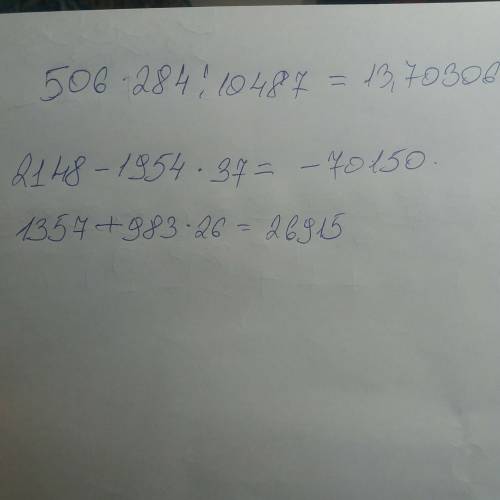 506 · 284 : 10487 = 13,70306
2148 - 1954 · 37 = -70150.
1357 + 983 · 26 = 26915